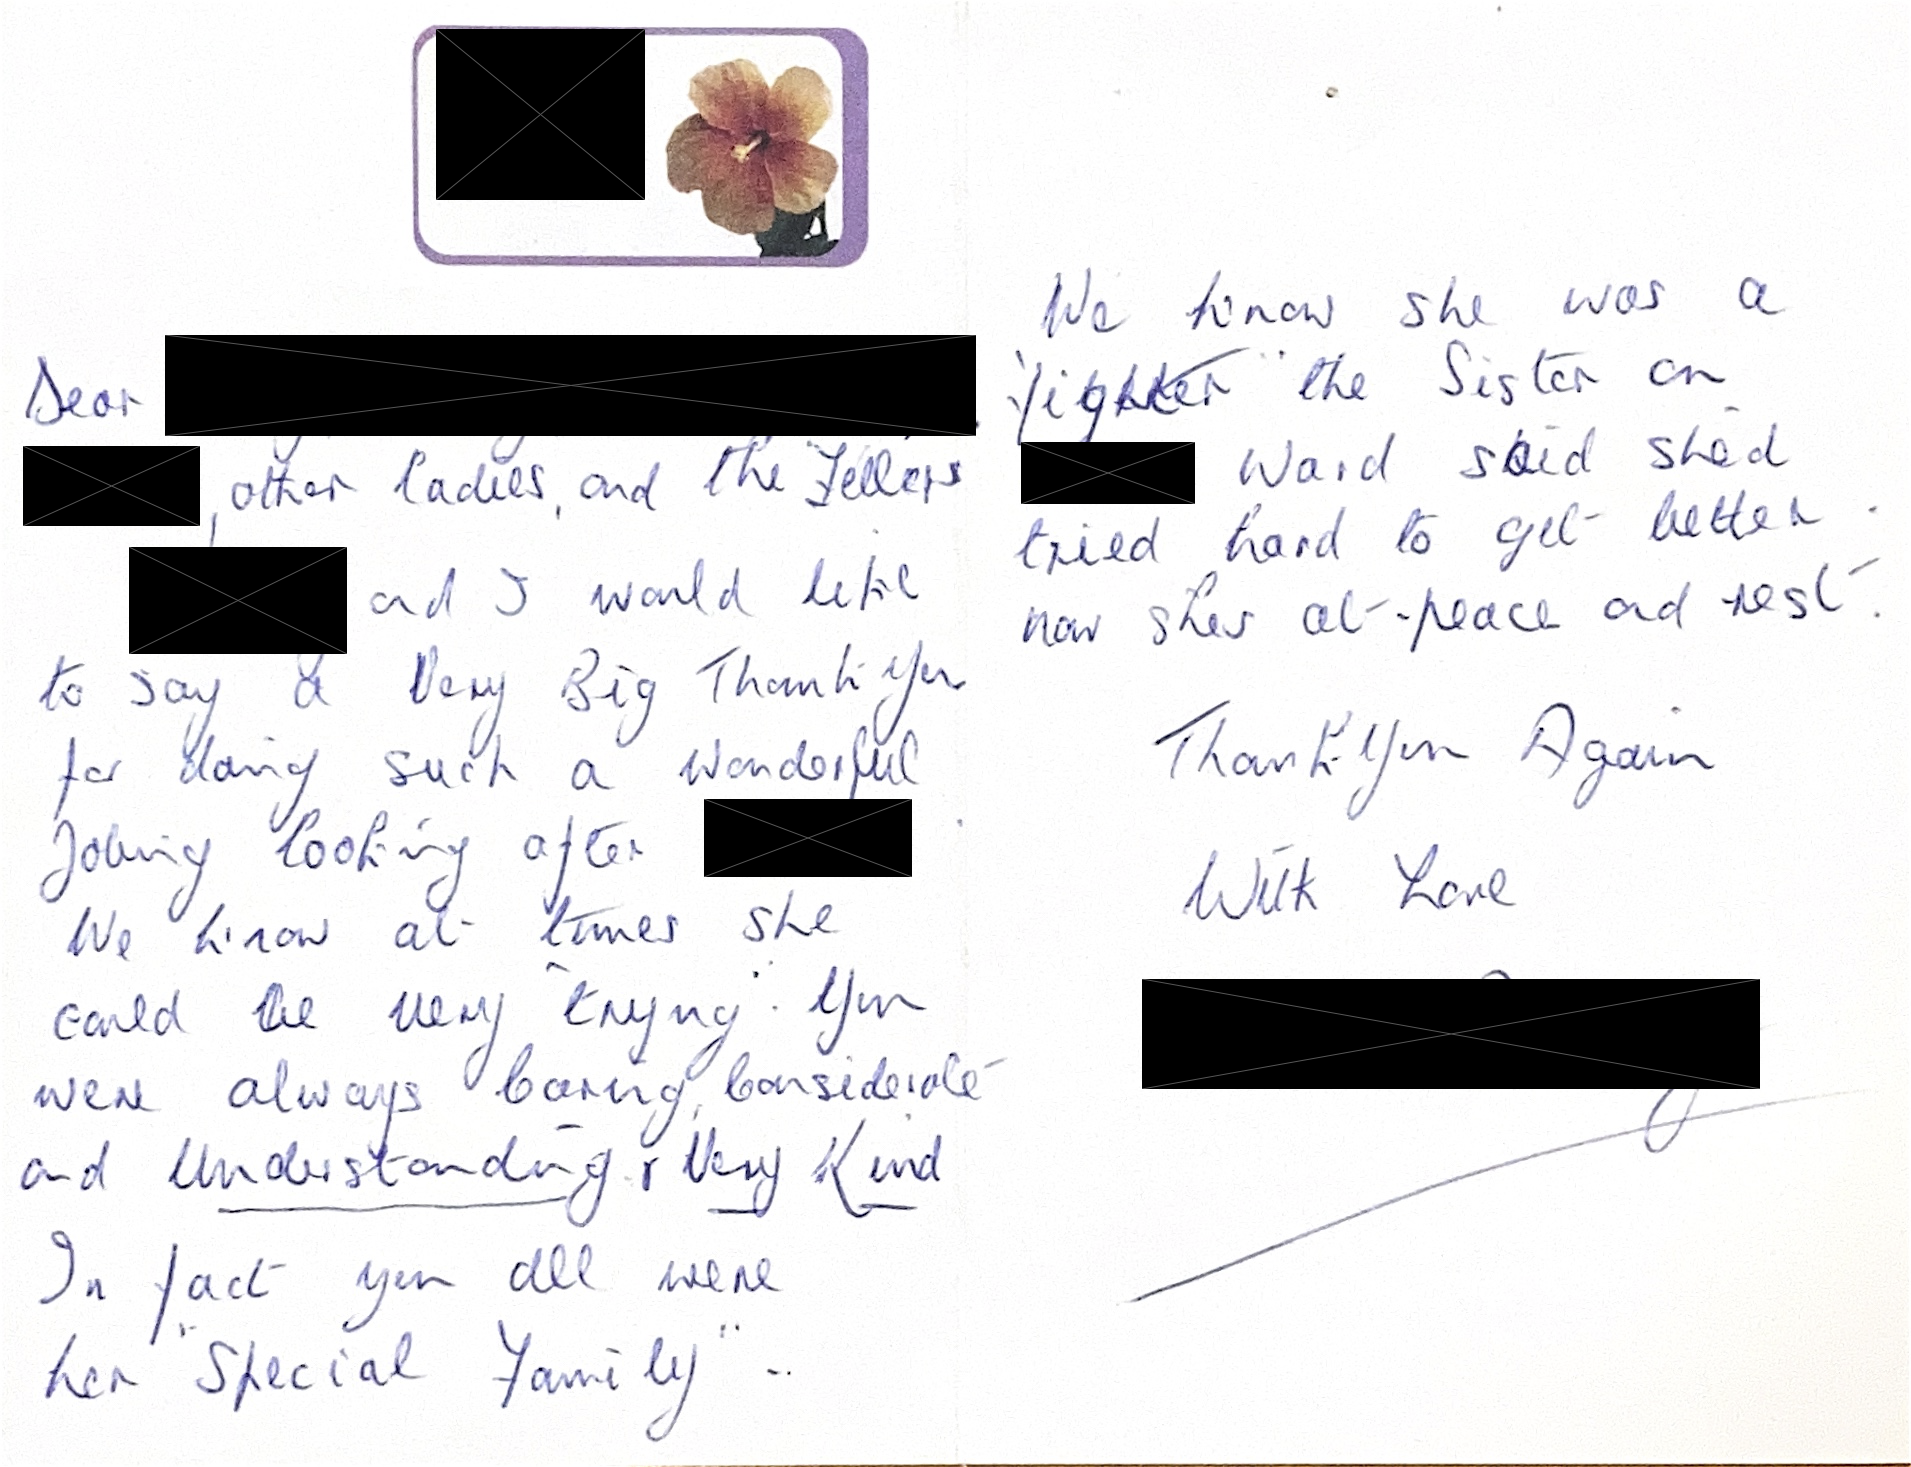 Dear
, other ladies, and the "Fellers
and I would like
to say a Very Big Thank You
for doing such a wonderful
Jobing looking after
We know at times she
could be very "trying". You
were always Caring, Considerate
and Understanding & Very Kind
In fact you all were
her "Special Family" ..
We know she was a
"fighter" the Sister on
Ward said shed
tried hard to get better.
now shes at peace and rest.
Thank You Again
With Love